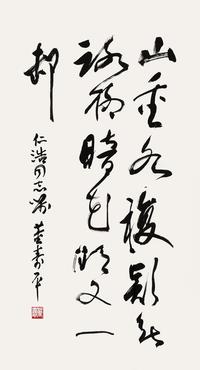 山重水複疑无
路柳暗花明又一
邨
仁浩同志属 董寿平